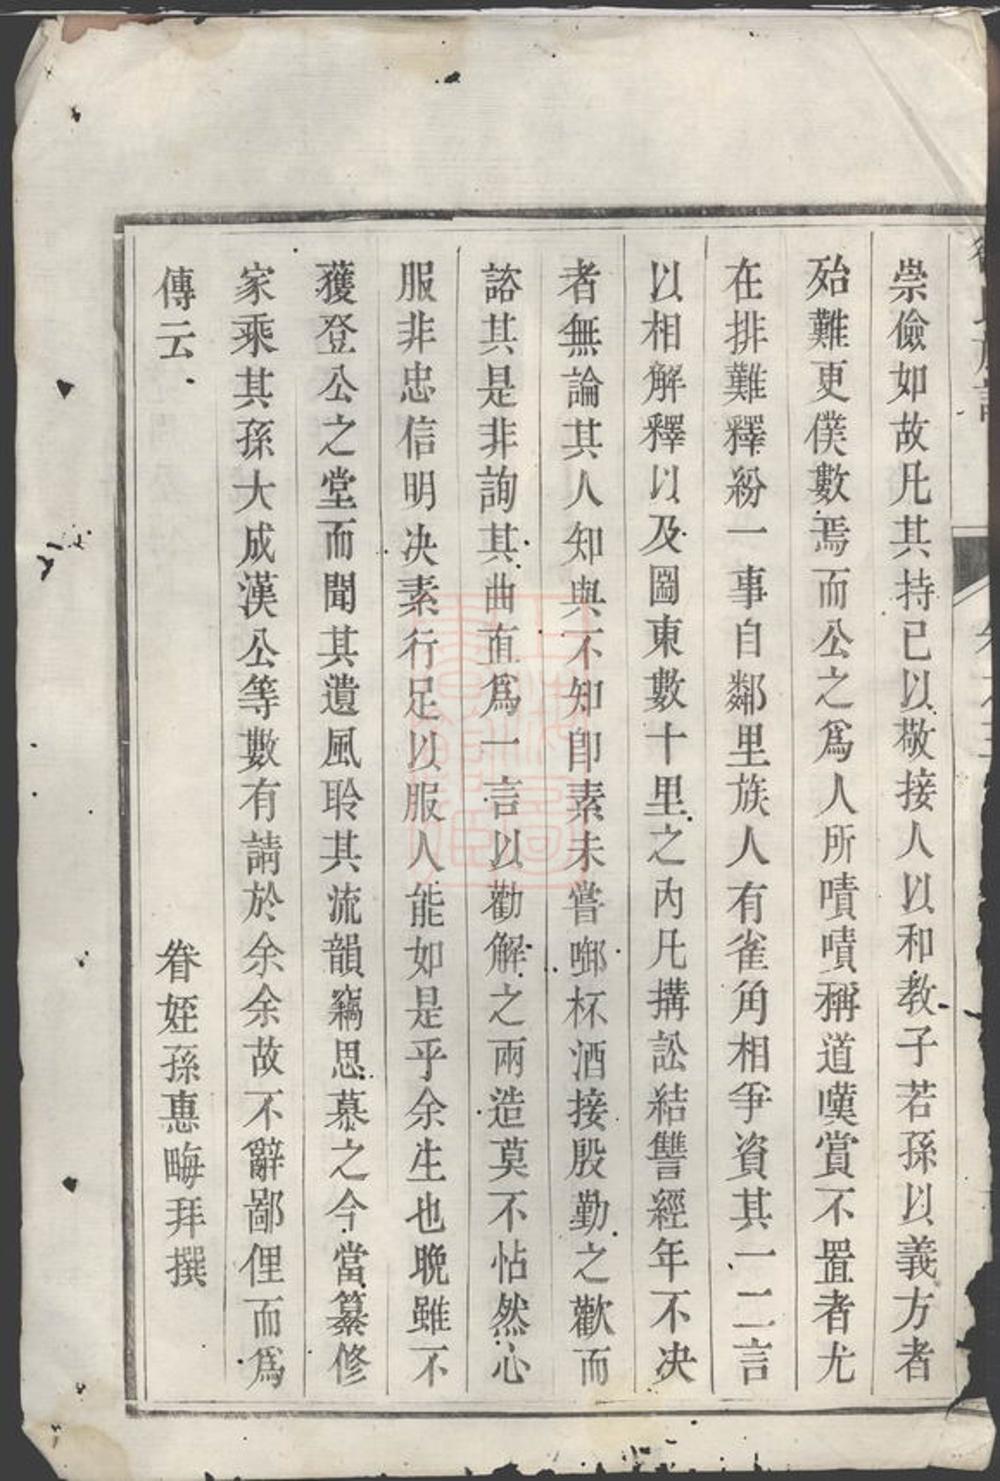 崇儉如故凡其持已以敬接人以和教子若孫以義方者
殆難更僕數焉而公之爲人所嘖嘖稱道嘆賞不置者尤
在排難釋紛一事自鄰里族人有雀角相爭資其一二言
以相解釋以及圖東數十里之內凡搆訟結讐經年不决
者無論其人知與不知卽素未嘗啣杯酒接殷勤之歡而
諮其是非詢其曲直爲一言以勸解之兩造莫不帖然心
服非忠信明决素行足以服人能如是乎余生也晚雖不
獲登公之堂而聞其遺風聆其流韻竊思慕之今當纂修
家乘其孫大成漢公等數有請於余余故不辭鄙俚而爲
傳云
眷姪孫惠畮拜撰